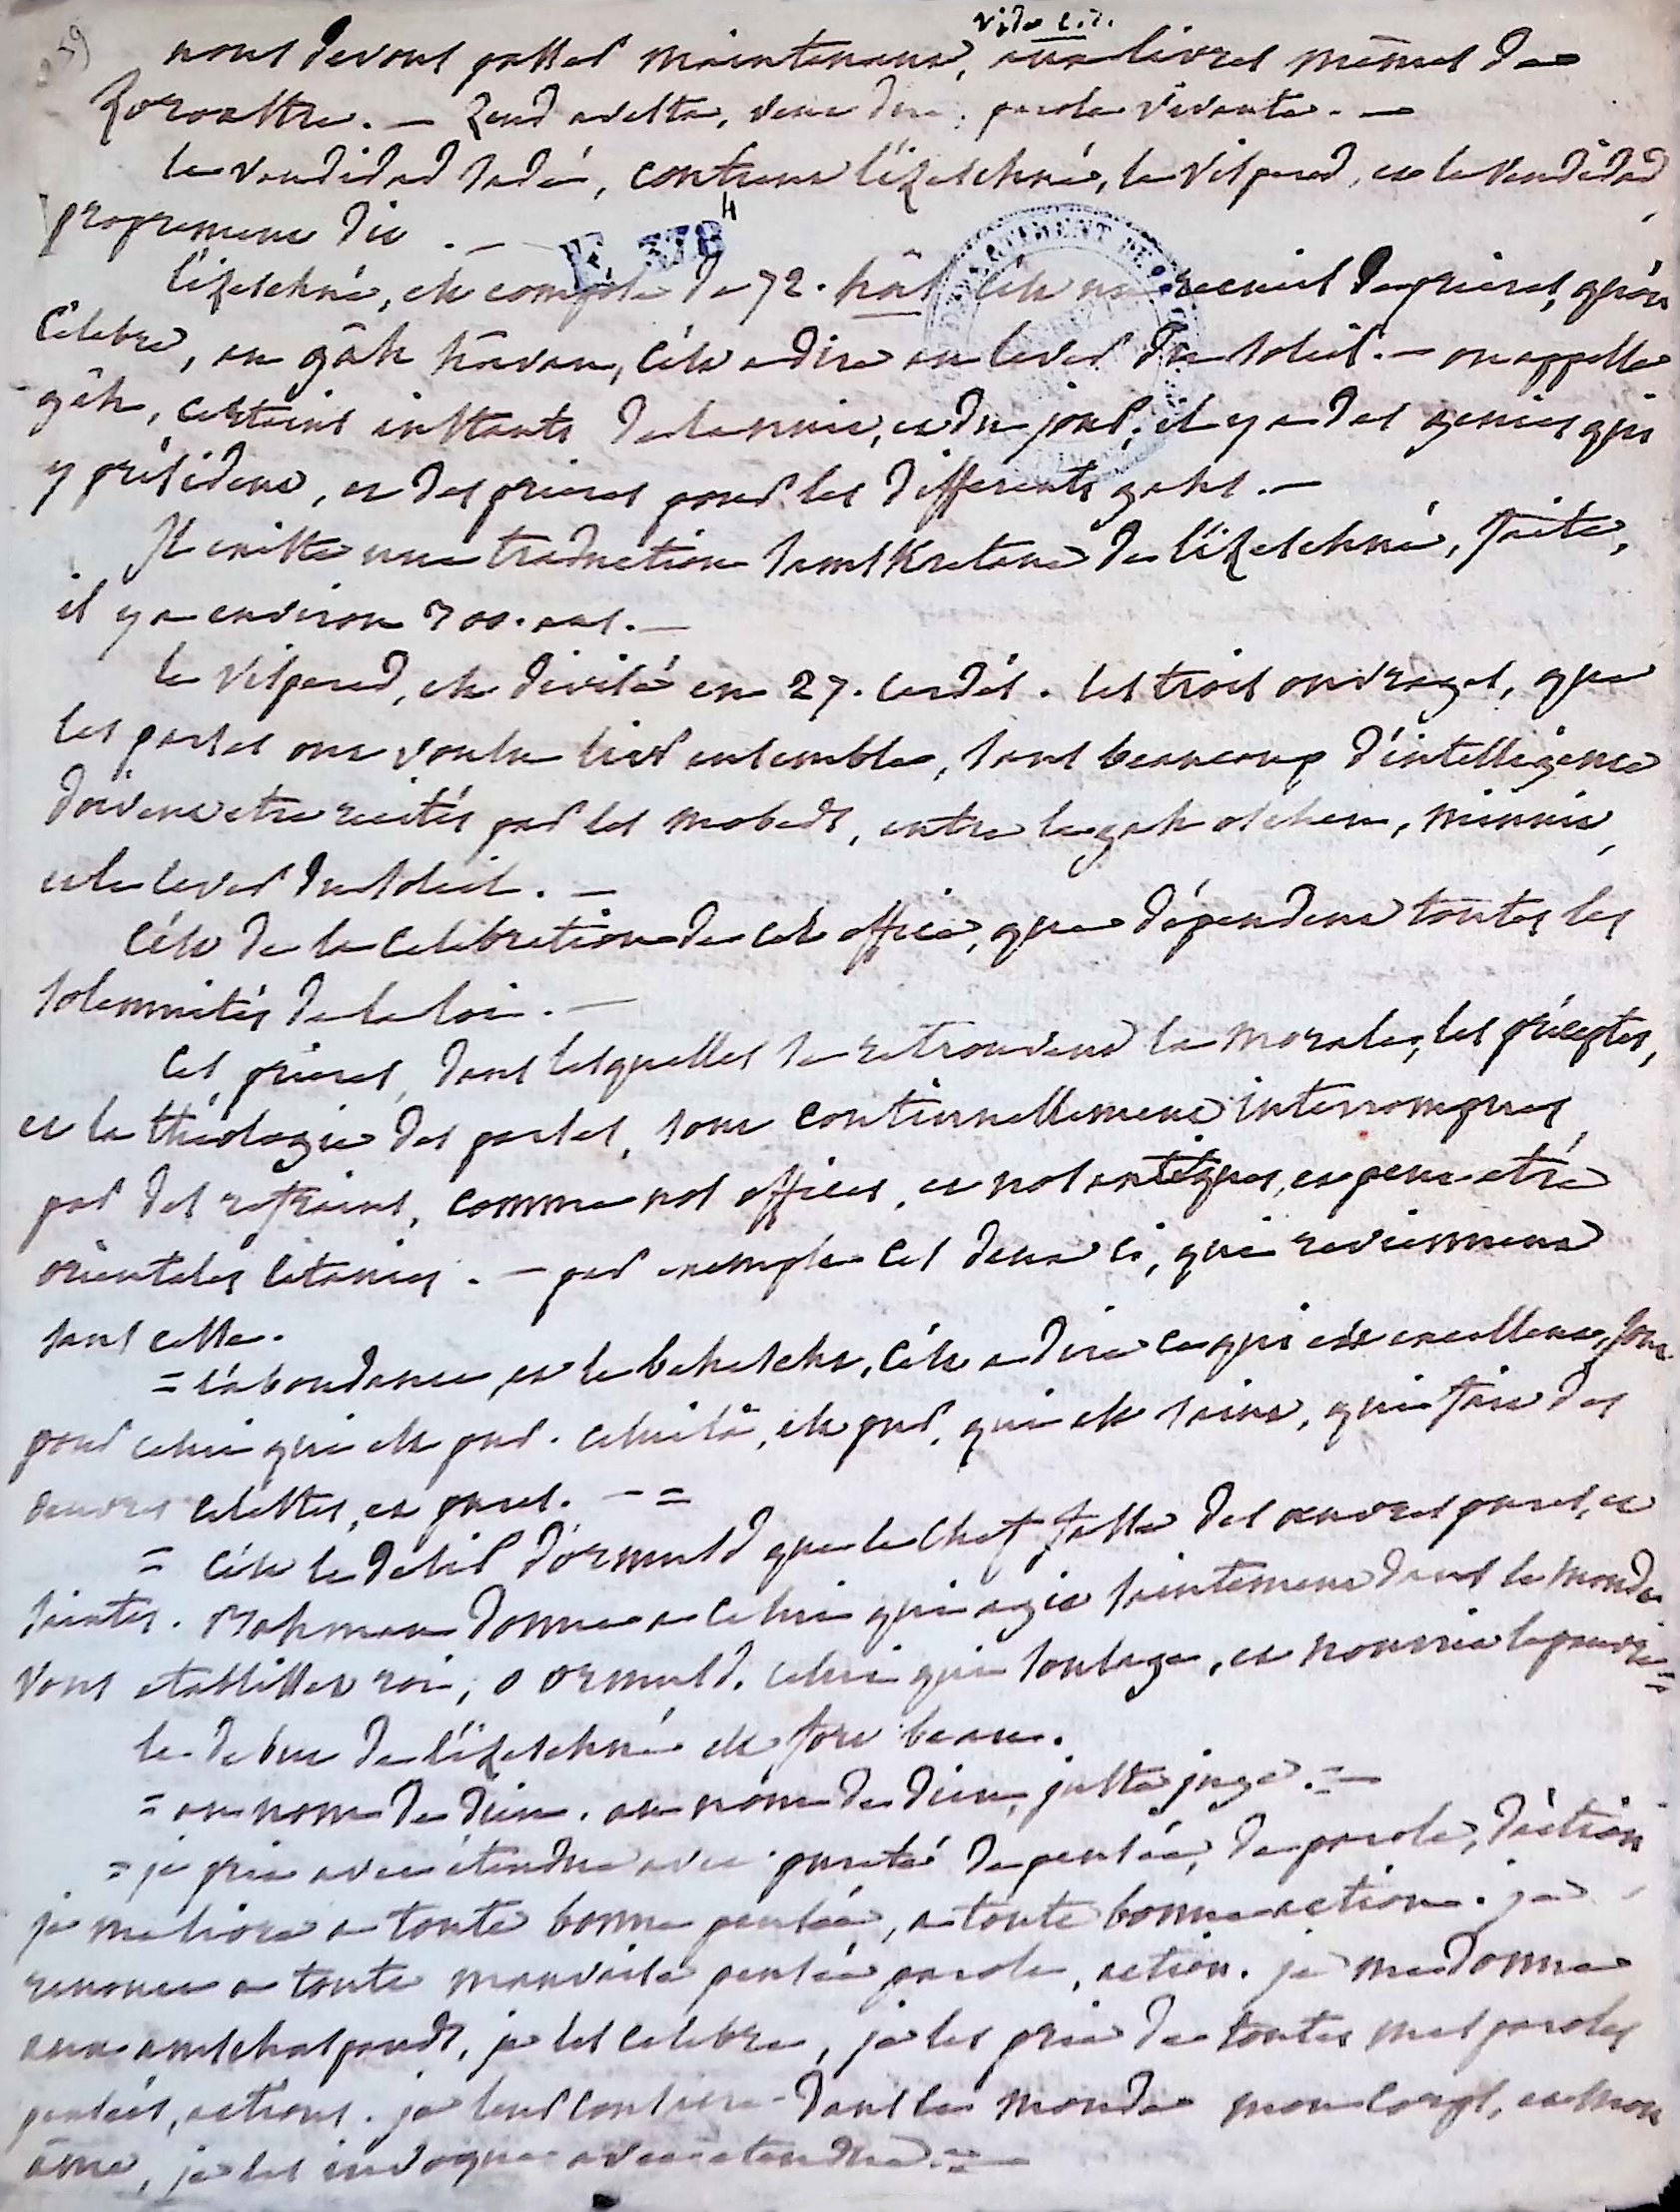 59
vide c.i.
nous devons passer maintenant, aux livres mêmes de
Zoroastre. — Zend avesta, veut dire, parole vivante. —
le vendidad sadé, contient l'izeschné, le vispered, et le vendidad
proprement dit. —
F 378 4
l'izeschné, est composé de 72. hâs c'est un recueil de prieres, qu'on
célèbre, au gâh hâvan, c'est a dire au lever du soleil. — on appelle
gâh, certains instants de l'année, et du jour; il y a des genies qui
y président, et des prieres pour les differents gahs. —
Il existe une traduction samskretane de l'izeschné, faite,
il y a environ 300. ans. —
le vispered, est divisé en 27. cardés. les trois ouvrages, que
les parses ont voulu lier ensemble, sans beaucoup d'intelligence
doivent etre recités par les mobeds, entre le gah oschen, minuit,
et le lever du soleil. —
c'est de la celebration de cet office, que dépendent toutes les
solemnités de la loi. —
Ces prieres, dans lesquelles se retrouvent la morale, les préceptes,
et la théologie des parses, sont continuellement interrompues
par des refrains, comme nos offices, et nos antiques, et peut etre
orientales litanies. — par exemple ces deux ci, qui reviennent
sans cesse.
= l'abondance, et le behescht, c'est a dire ce qui est excellent, sont
pour celui qui est pur. celui là, est pur, qui est saint, qui fait des
œuvres celestes, et pures. — =
= c'est le desir d'ormusd que le chef fasse des œuvres pures, et
saintes. Bahman donne a celui qui agit saintement dans le monde.
vous etablissez roi, o ormusd. celui qui soulage, et nourrit le pauvre =
le debut de l'izeschné est fort beau.
= au nom de dieu. au nom de dieu, juste juge. = —
= je prie avec étendue avec pureté de pensée, de parole, d'action
je me livre a toute bonne pensée, a toute bonne action. je
renonce a toute mauvaise pensée parole, action. je me donne
aux amschaspands, je les celebre, je les prie de toutes mes paroles
pensées, actions. je leur consacre dans le monde mon corps, et mon
âme, je les invoque avec étendue. = —